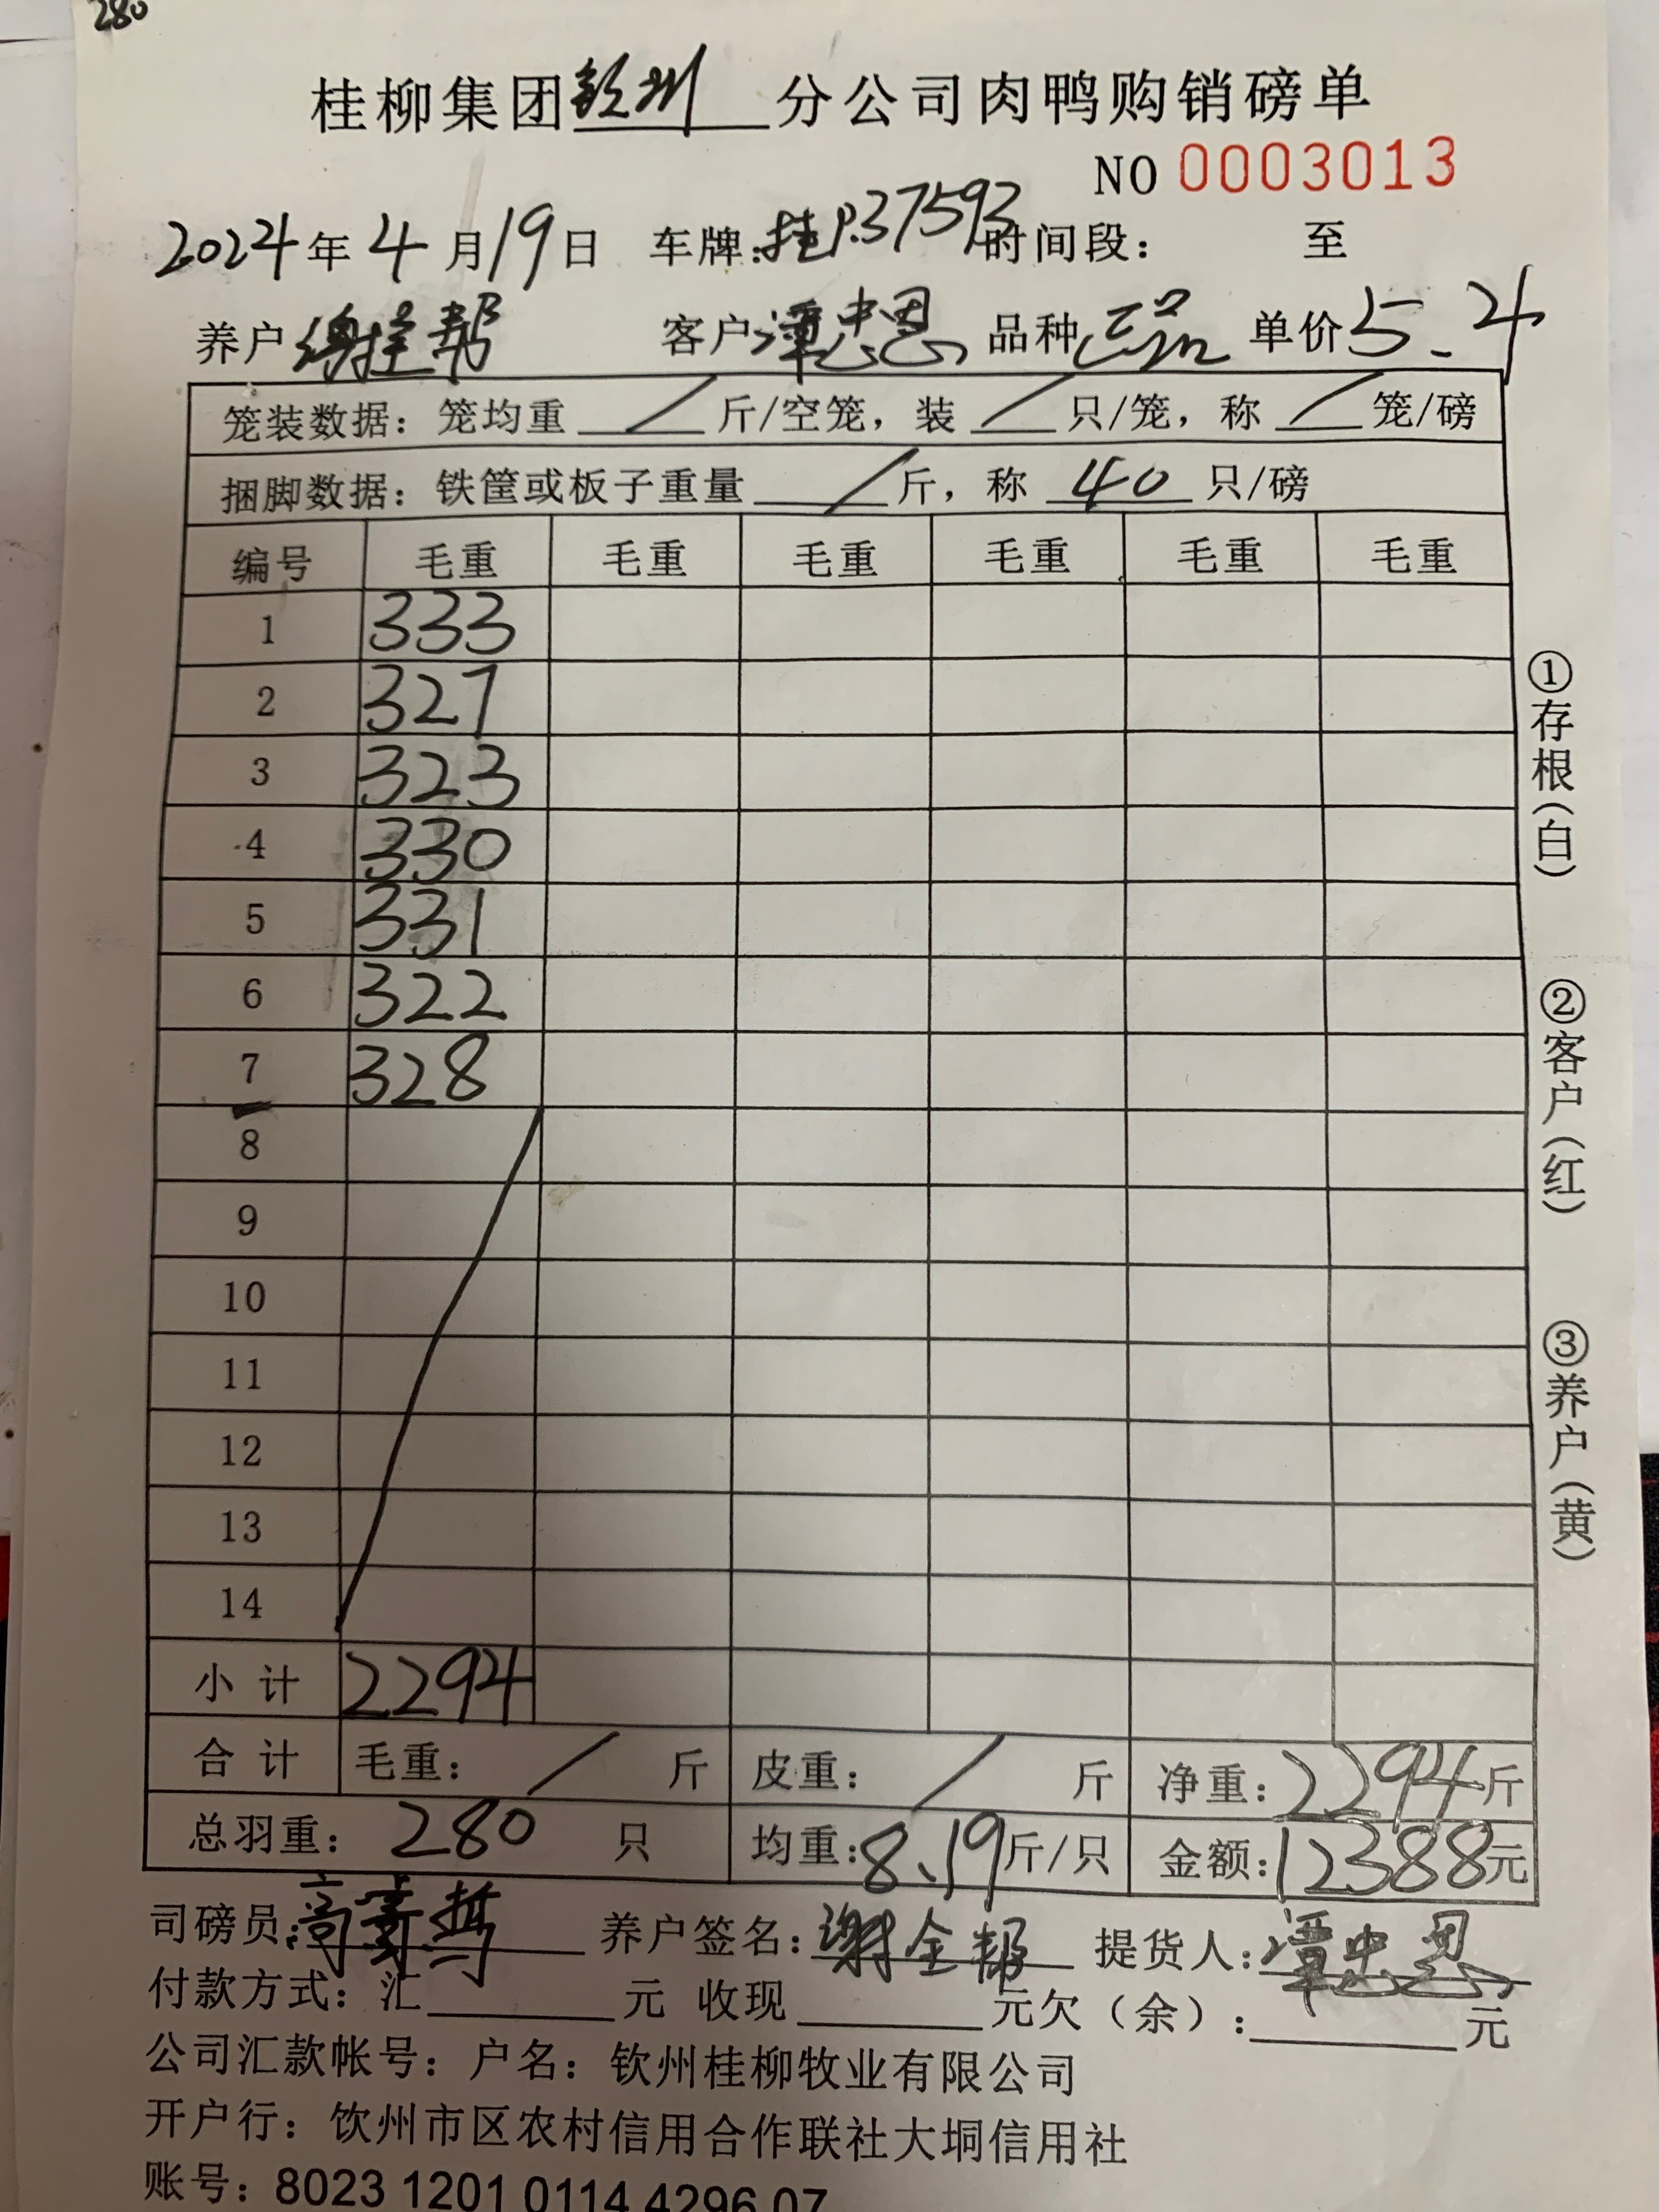 280
桂柳集团钦州分公司肉鸭购销磅单
NO 0003013
2024年4月19日 车牌:桂P.37593 时间段: 至
养户 谢全帮 客户 潭忠恩 品种 单价 5.4
笼装数据:笼均重 / 斤/空笼,装 / 只/笼,称 / 笼/磅
捆脚数据:铁筐或板子重量 / 斤,称 40 只/磅
编号 毛重 毛重 毛重 毛重 毛重 毛重
1 333
2 327
3 323
4 330
5 331
6 322
7 328
8
9
10
11
12
13
14
小计 2294
合计 毛重: / 斤 皮重: / 斤 净重:2294斤
总羽重: 280 只 均重:8.19斤/只 金额:12388元
司磅员: 养户签名:谢全帮 提货人:潭忠恩
付款方式:汇 元 收现 元欠(余): 元
公司汇款帐号:户名:钦州桂柳牧业有限公司
开户行:饮州市区农村信用合作联社大垌信用社
账号:8023 1201 0114 4296 07
①存根(白)
②客户(红)
③养户(黄)